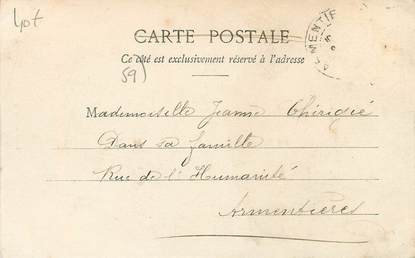 Lot
CARTE POSTALE
Ce côté est exclusivement réservé à l'adresse
59)
ARMENTI
Mademoiselle Jeanne
Dans sa famille
Rue de l'Humanité
Armentières